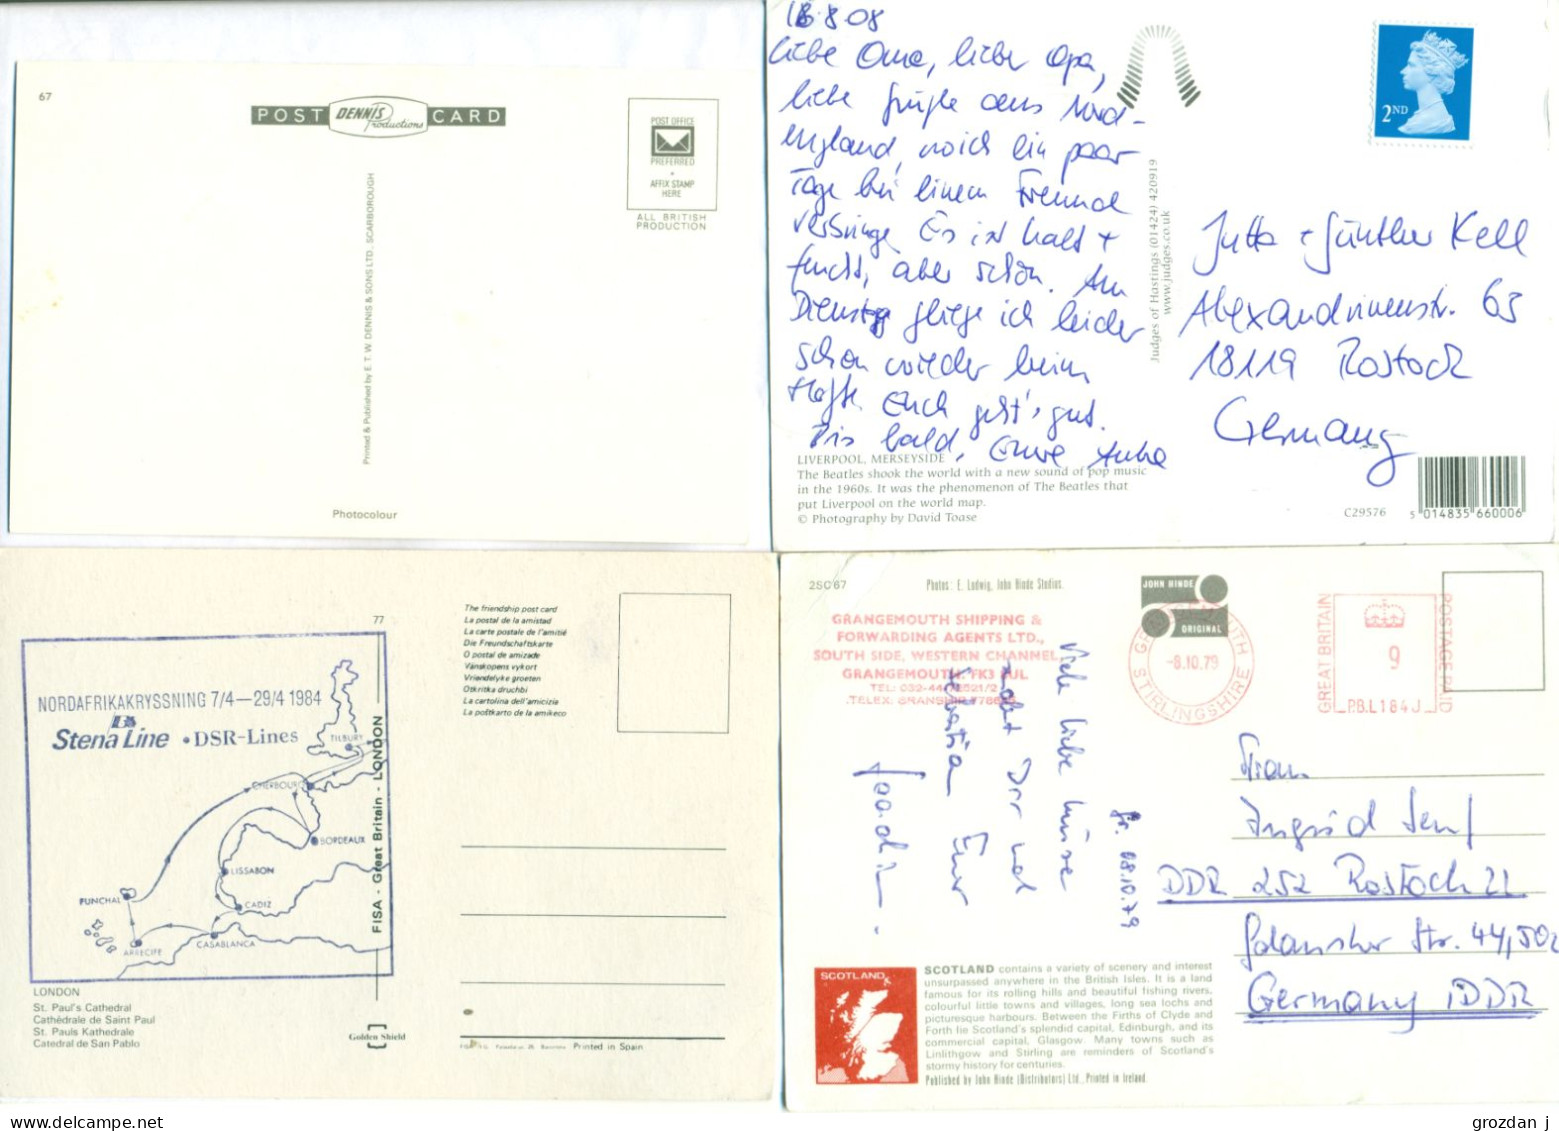 67
POST DENNIS Productions CARD
POST OFFICE
PREFERRED
AFFIX STAMP
HERE
ALL BRITISH
PRODUCTION
Printed & Published by E. T. W. DENNIS & SONS LTD., SCARBOROUGH
Photocolour
18.8.08
Liebe Oma, lieber Opa,
liebe Grüße aus Nord-
england, wo ich ein paar
Tage bei einem Freund
verbringe. Es ist kalt +
feucht, aber schön. Am
Dienstag fliege ich leider
schon wieder heim.
Euch geht's gut.
Bis bald, Eure Anke
2ND
Judges of Hastings (01424) 420919
www.judges.co.uk
Jutta + Günther Kell
Alexandrinenstr. 63
18119 Rostock
Germany
LIVERPOOL, MERSEYSIDE
The Beatles shook the world with a new sound of pop music
in the 1960s. It was the phenomenon of The Beatles that
put Liverpool on the world map.
© Photography by David Toase
C29576
5 014835 660006
77
The friendship post card
La postal de la amistad
La carte postale de l'amitié
Die Freundschaftskarte
O postal de amizade
Vänskopens vykort
Vriendelyke groeten
Otkritka druchbi
La cartolina dell'amicizia
La poŝtkarto de la amikeco
NORDAFRIKAKRYSSNING 7/4—29/4 1984
Stena Line • DSR-Lines
TILBURY
CHERBOURG
BORDEAUX
LISSABON
CADIZ
FUNCHAL
ARRECIFE
CASABLANCA
FISA - Great Britain - LONDON
LONDON
St. Paul's Cathedral
Cathédrale de Saint Paul
St. Pauls Kathedrale
Catedral de San Pablo
Golden Shield
Printed in Spain
2SC67
Photos: E. Ludwig, John Hinde Studios.
JOHN HINDE
ORIGINAL
GRANGEMOUTH SHIPPING &
FORWARDING AGENTS LTD.,
SOUTH SIDE, WESTERN CHANNEL,
GRANGEMOUTH. FK3 8UL
-8.10.79
STIRLINGSHIRE
GREAT BRITAIN
9
P.B.L184J
POSTAGE PAID
Viele liebe Küsse
Dir und
Sebastian Euer
Joachim
Gr. 08.10.79
Frau
Ingrid Senf
DDR 252 Rostock 22
Gdansker Str. 44, 502
Germany / DDR
SCOTLAND
SCOTLAND contains a variety of scenery and interest
unsurpassed anywhere in the British Isles. It is a land
famous for its rolling hills and beautiful fishing rivers,
colourful little towns and villages, long sea lochs and
picturesque harbours. Between the Firths of Clyde and
Forth lie Scotland's splendid capital, Edinburgh, and its
commercial capital, Glasgow. Many towns such as
Linlithgow and Stirling are reminders of Scotland's
stormy history for centuries.
Published by John Hinde (Distributors) Ltd., Printed in Ireland.
grozdan j